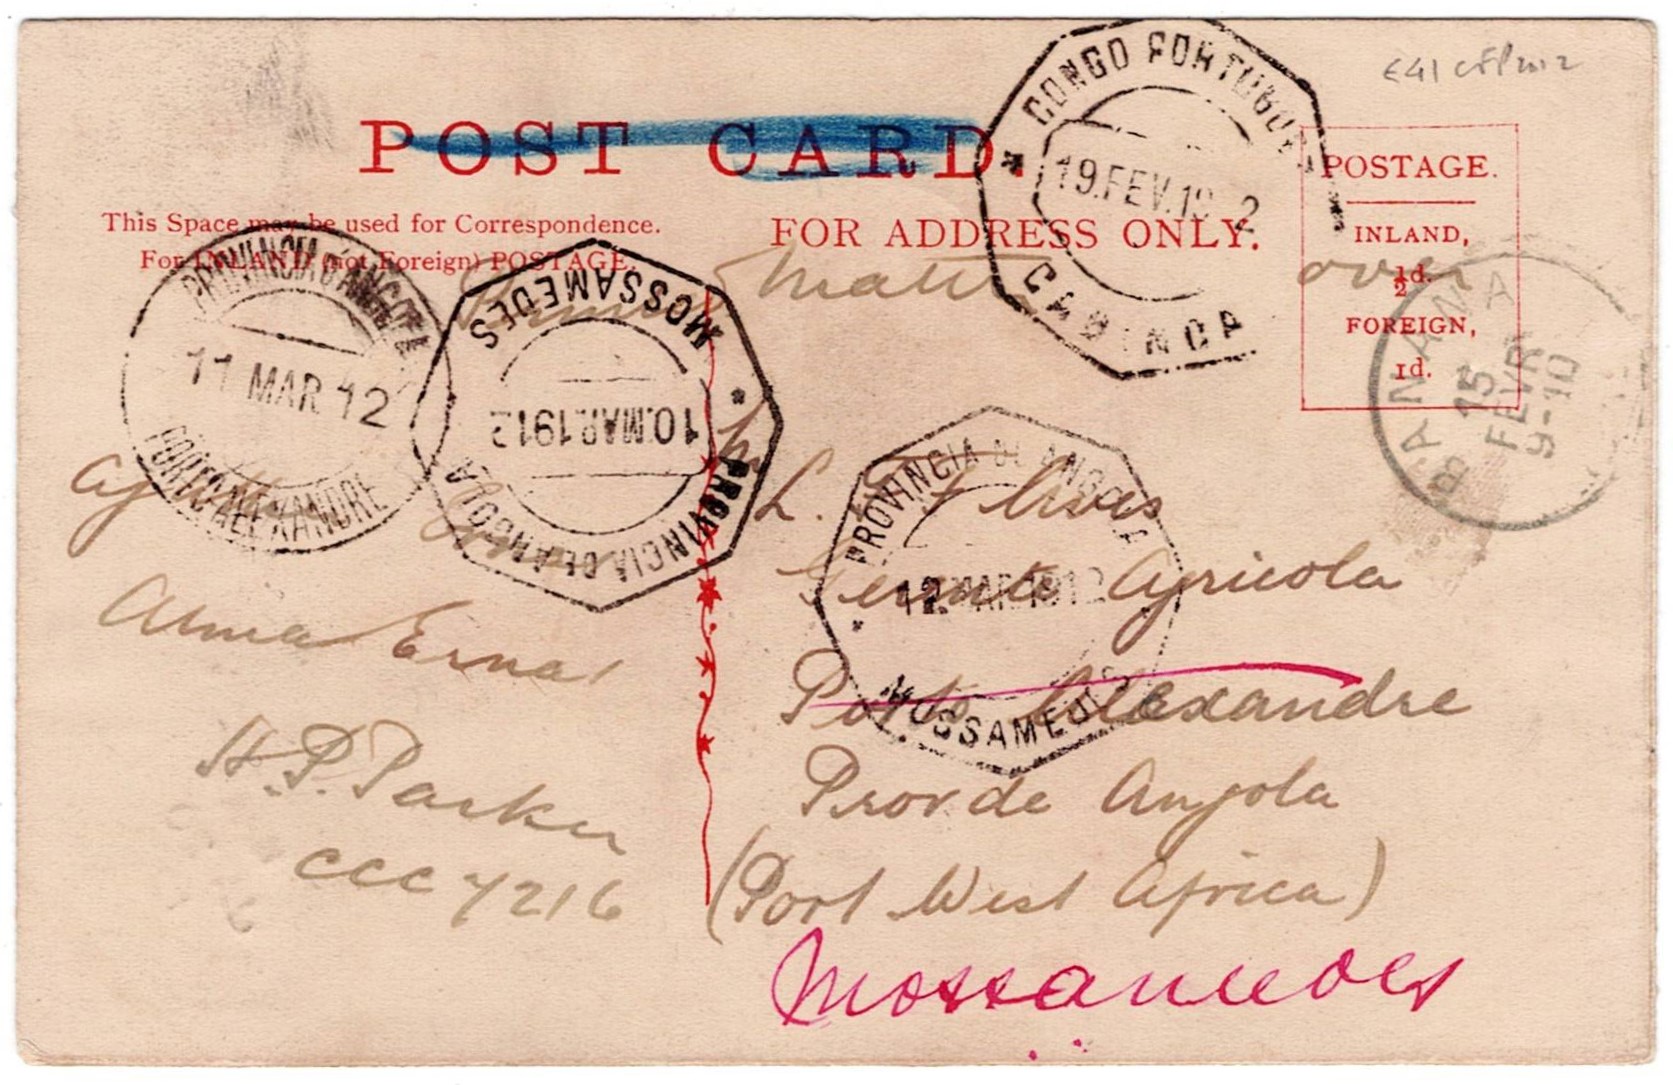 POST CARD.
This Space may be used for Correspondence.
For INLAND (not Foreign) POSTAGE.
FOR ADDRESS ONLY.
POSTAGE.
INLAND,
½d.
FOREIGN,
1d.
CONGO PORTUGUEZ
19.FEV.19 2
CABINDA
BANANA
15
FEVR
9-10
PROVINCIA D'ANGOLA
11 MAR 12
PORTO ALEXANDRE
MOSSAMEDES
10.MAR.1912
PROVINCIA DE ANGOLA
PROVINCIA DE ANGOLA
12.MAR.1912
MOSSAMEDES
over
Alma Erna
H. P. Parker
CCC 7216
L. Alves
Agricola
Porto Alexandre
Prov de Angola
(Port West Africa)
Mossamedes